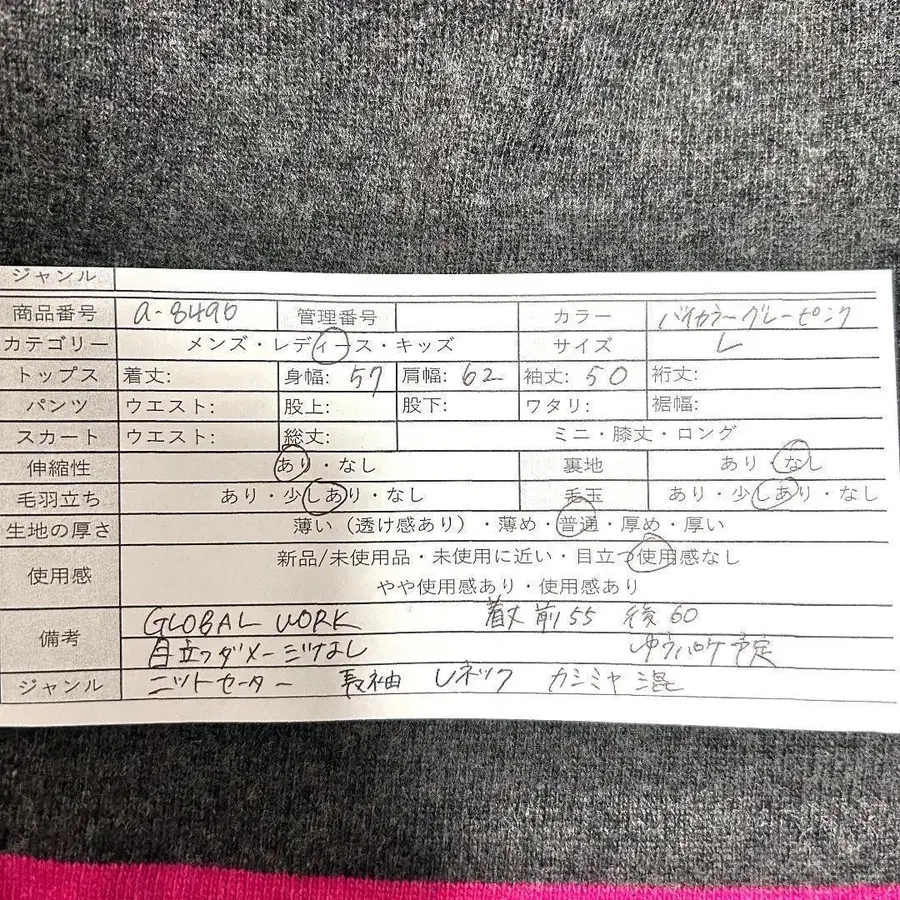 ジャンル
商品番号 a-8496 管理番号 カラー バイカラーグレーピンク
カテゴリー メンズ・レディース・キッズ サイズ L
トップス 着丈: 身幅: 57 肩幅: 62 袖丈: 50 裄丈:
パンツ ウエスト: 股上: 股下: ワタリ: 裾幅:
スカート ウエスト: 総丈: ミニ・膝丈・ロング
伸縮性 あり・なし 裏地 あり・なし
毛羽立ち あり・少しあり・なし 毛玉 あり・少しあり・なし
生地の厚さ 薄い(透け感あり)・薄め・普通・厚め・厚い
使用感 新品/未使用品・未使用に近い・目立つ使用感なし
やや使用感あり・使用感あり
備考 GLOBAL WORK 着丈 前55 後60
目立つダメージなし ゆうパケ予定
ジャンル ニットセーター 長袖 Vネック カシミヤ混